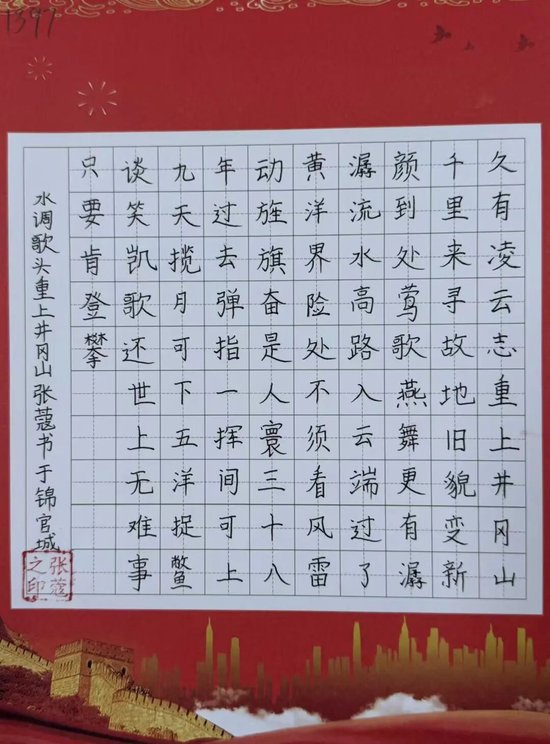 1397
久有凌云志重上井冈山
千里来寻故地旧貌变新
颜到处莺歌燕舞更有潺
潺流水高路入云端过了
黄洋界险处不须看风雷
动旌旗奋是人寰三十八
年过去弹指一挥间可上
九天揽月可下五洋捉鳖
谈笑凯歌还世上无难事
只要肯登攀
水调歌头重上井冈山张蔻书于锦官城
张蔻之印